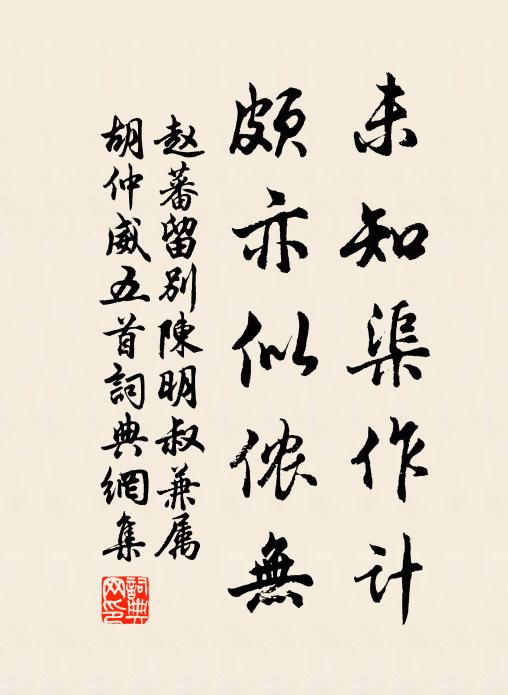 未知渠作计
颇亦似侬無
赵蕃留别陳明叔兼属
胡仲威五首詞典網集
詞典网印